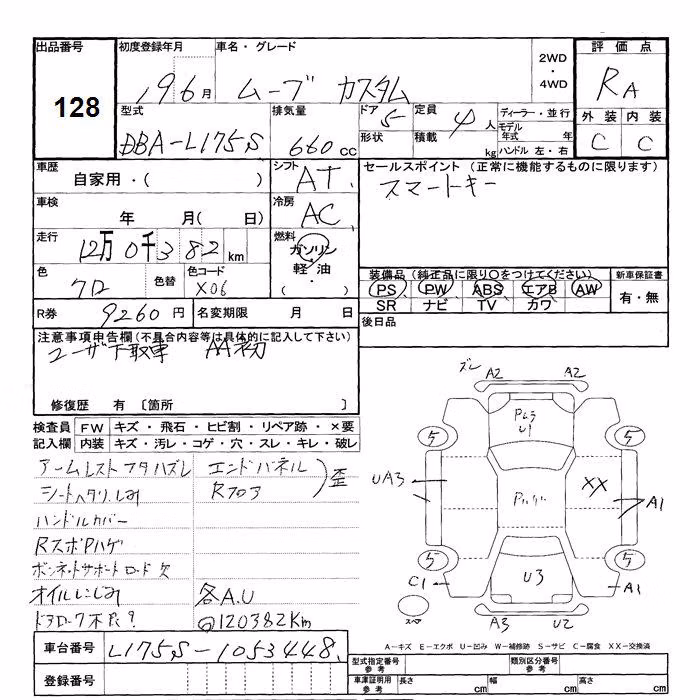 出品番号 初度登録年月 車名・グレード 2WD・4WD 評価点
128 19 6月 ムーブ カスタム RA
型式 排気量 ドア 5 定員 4人 ディーラー・並行 外装 内装
DBA-L175S 660cc 形状 積載 kg モデル年式 年 C C
ハンドル 左・右
車歴 シフト セールスポイント(正常に機能するものに限ります)
自家用・( ) AT スマートキー
車検 冷房
年 月( 日) AC
走行 燃料
12万0千382km ガソリン・軽油・( )
色 色替 色コード 装備品(純正品に限り○をつけてください) 新車保証書
クロ X06 PS PW ABS エアB AW 有・無
R券 9260円 名変期限 月 日 SR ナビ TV カワ
注意事項申告欄(不具合内容等は具体的に記入して下さい) 後日品
ユーザー下取車 AA初
修復歴 有〔箇所 〕
検査員 FW キズ・飛石・ヒビ割・リペア跡・×要
記入欄 内装 キズ・汚レ・コゲ・穴・スレ・キレ・破レ
アームレストフタハズレ エンドパネル
シートヘタリ、しみ Rフロア 歪
ハンドルカバー
RスポPハゲ
ボンネットサポートロード欠
オイルにじみ 各A.U
ドアロック不良? @120382Km
ズレ A2 A2
Pムラ
U1
5 5
UA3 Pハゲ XX A1
5 5
C1 U3 A1
スペア A3 U2
A-キズ E-エクボ U-凹み W-補修跡 S-サビ C-腐食 XX-交換済
車台番号 L175S-1053448
登録番号
型式指定番号 参考 類別区分番号 参考
車庫証明用 参考 長さ cm 幅 cm 高さ cm